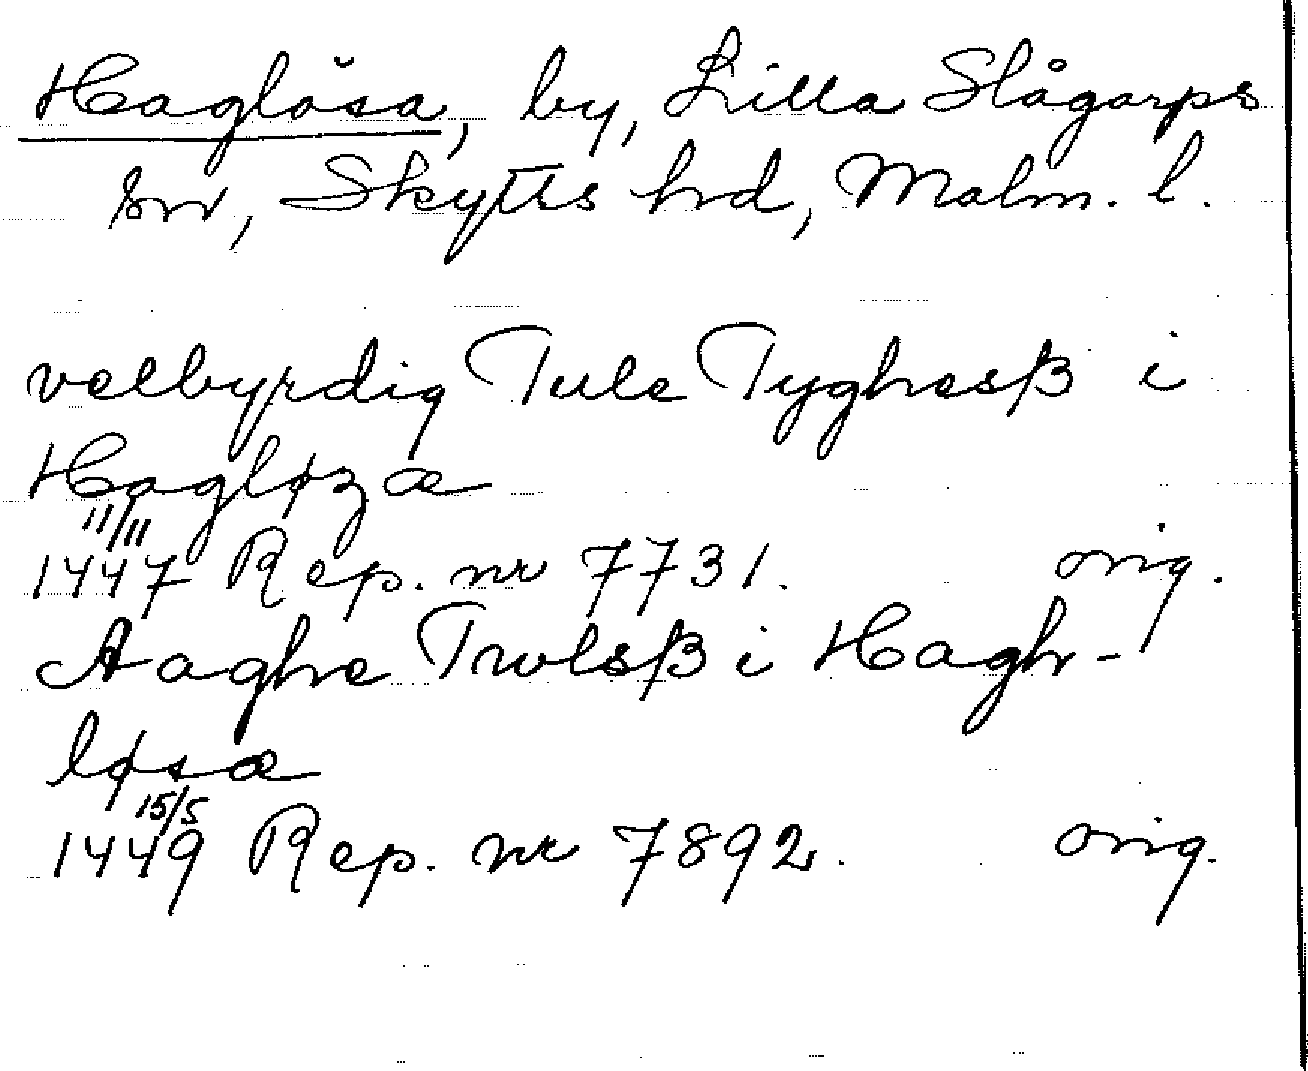 Haglösa, by, Lilla Slågarps
sn, Skytts hd, Malm. l.
velbyrdig Tule Tyghesß i
Hagløzæ
11/11
1447 Rep. nr 7731. orig.
Aaghe Trwlsß i Hagh-
løsæ
15/5
1449 Rep. nr 7892. orig.